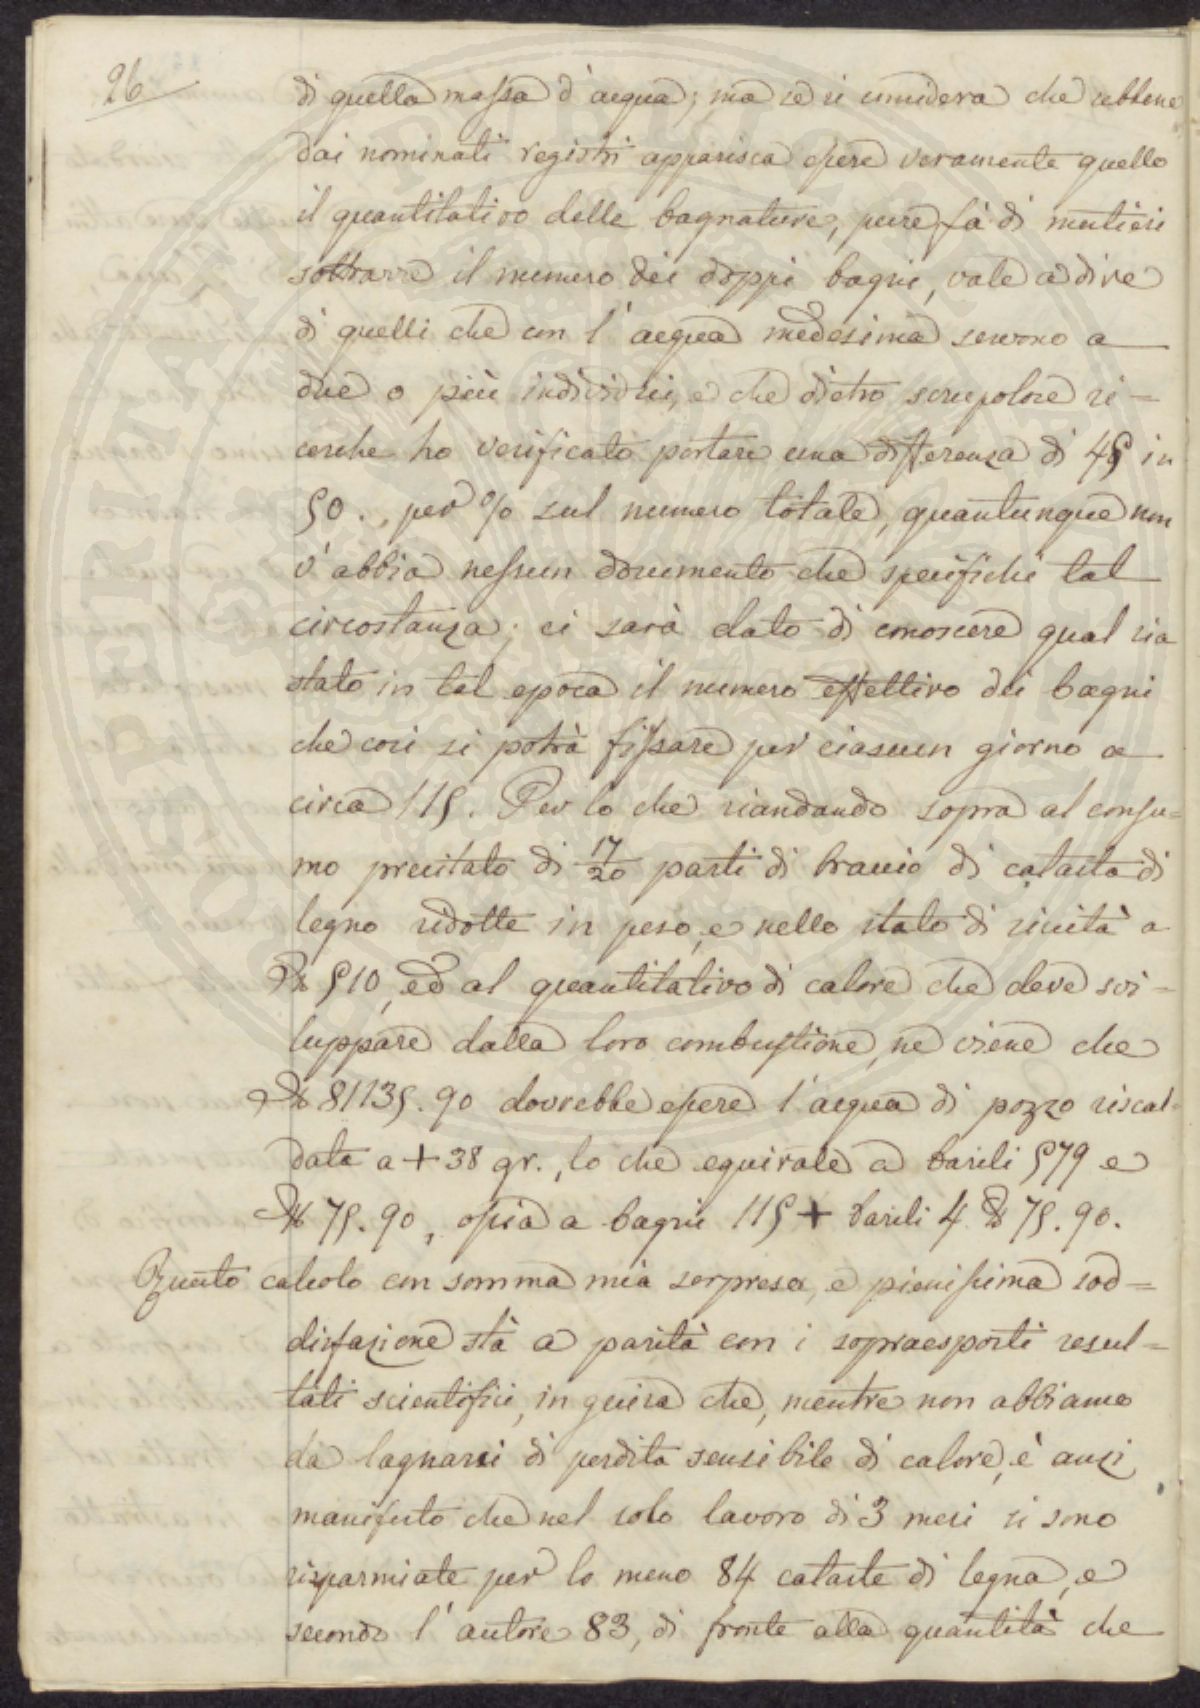 26
di quella massa d'acqua; ma se si considera che sebbene
dai nominati registri apparisca essere veramente quello
il quantitativo delle bagnature, pure fà di mestieri
sottrarre il numero dei doppi bagni, vale a dire
di quelli che con l'acqua medesima servono a
due o più individui, e che dietro scrupolose ri=
cerche ho verificato portare una differenza di 45 in
50. per % sul numero totale, quantunque non
v'abbia nessun documento che specifichi tal
circostanza; ci sarà dato di conoscere qual sia
stato in tal epoca il numero effettivo dei bagni
che così si potrà fissare per ciascun giorno a
circa 115. Per lo che riandando sopra al consu=
mo precitato di 17/20 parti di braccio di catasta di
legno ridotte in peso, e nello stato di siccità a
℔ 510, ed al quantitativo di calore che deve svi=
luppare dalla loro combustione, ne viene che
℔ 81135.90 dovrebbe essere l'acqua di pozzo riscal=
data a + 38 gr., lo che equivale a barili 579 e
℔ 75.90, ossia a bagni 115 + barili 4 ℔ 75.90.
Questo calcolo con somma mia sorpresa, e pienissima sod=
disfazione stà a parità con i sopraesposti resul=
tati scientifici, in guisa che, mentre non abbiamo
da lagnarsi di perdita sensibile di calore, è anzi
manifesto che nel solo lavoro di 3 mesi si sono
risparmiate per lo meno 84 cataste di legna, e
secondo l'autore 83, di fronte alla quantità che
PROSPERITATI PUBLICAE